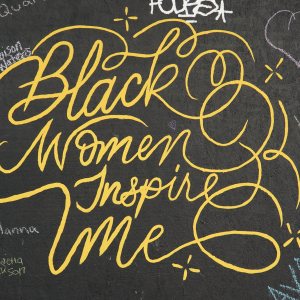 Black
Women
Inspire
Me